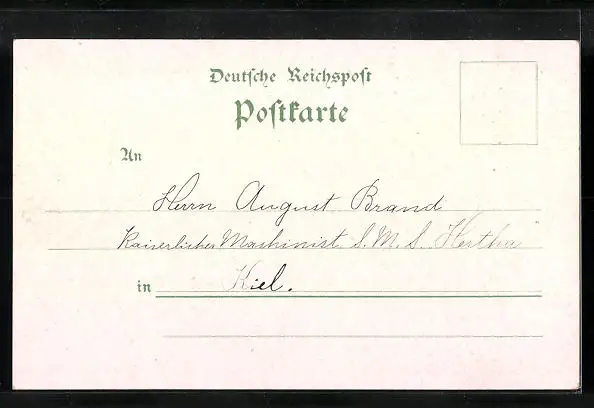 Deutsche Reichspost
Postkarte
An
Herrn August Brand
Kaiserlicher Maschinist S. M. S. Hertha
in Kiel.